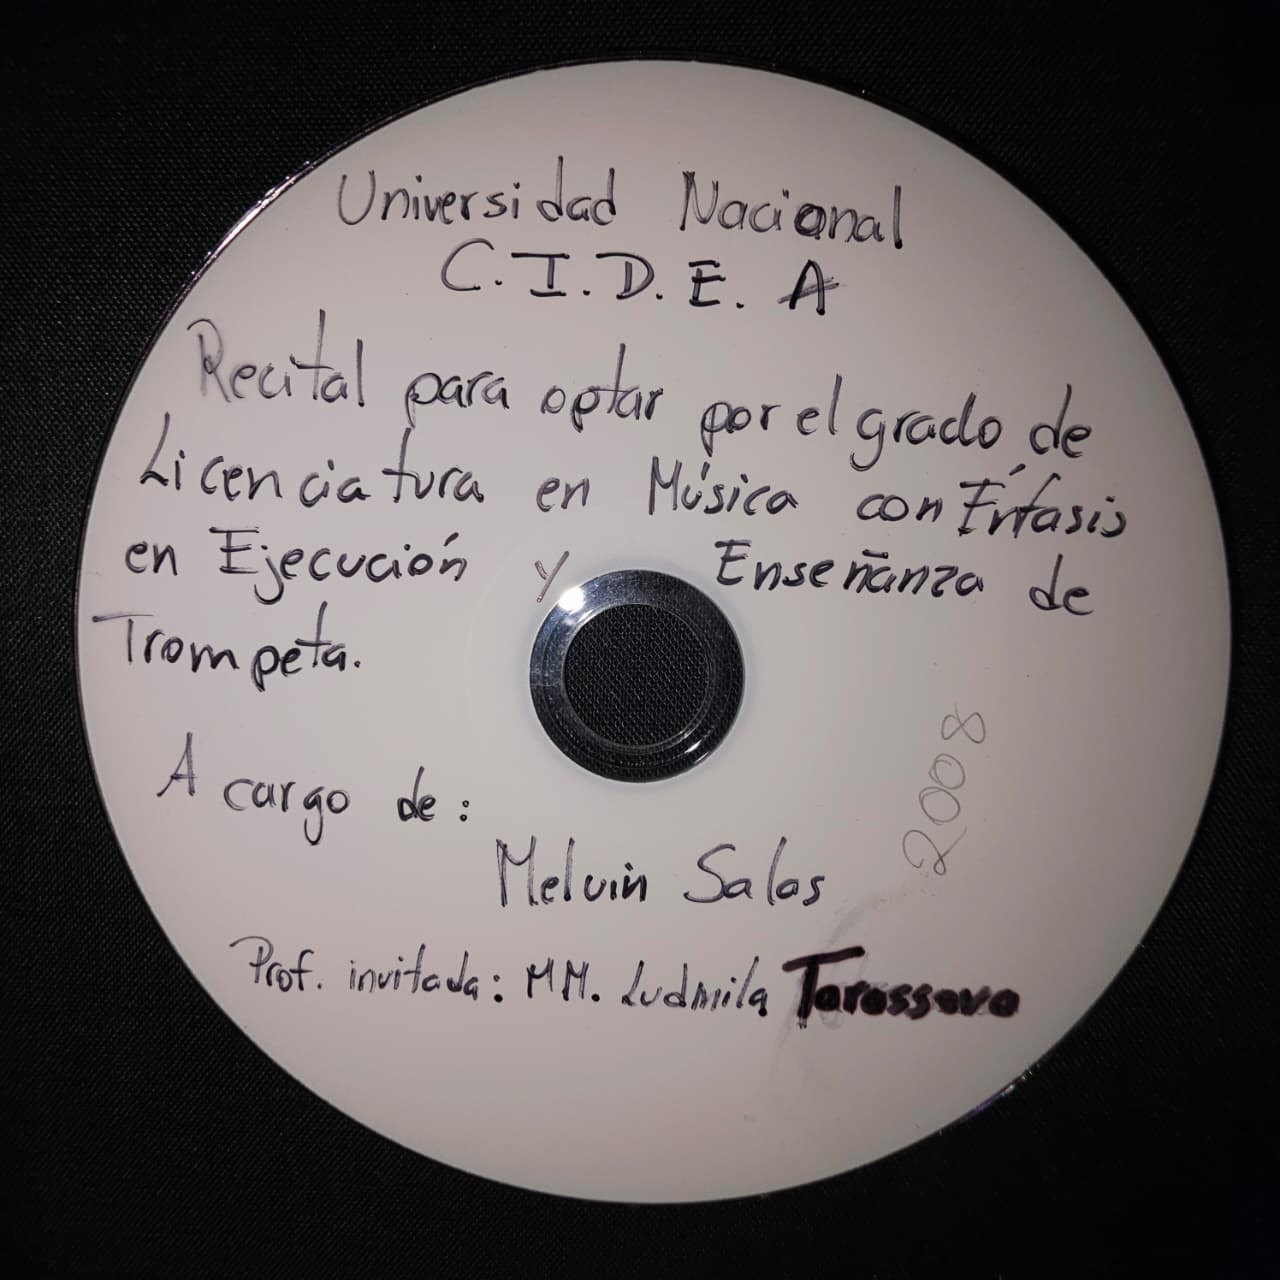 Universidad Nacional
C.I.D.E.A
Recital para optar por el grado de
Licenciatura en Música con Énfasis
en Ejecución y Enseñanza de
Trompeta.
A cargo de:
Melvin Salas
Prof. invitada: MM. Ludmila Tarassova
2008